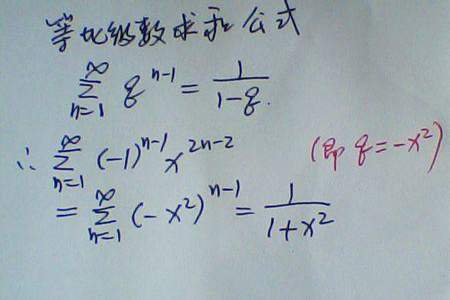 等比级数求和公式
∑_{n=1}^{∞} q^{n-1} = 1/(1-q).
∴ ∑_{n=1}^{∞} (-1)^{n-1} x^{2n-2} (即 q=-x²)
= ∑_{n=1}^{∞} (-x²)^{n-1} = 1/(1+x²)